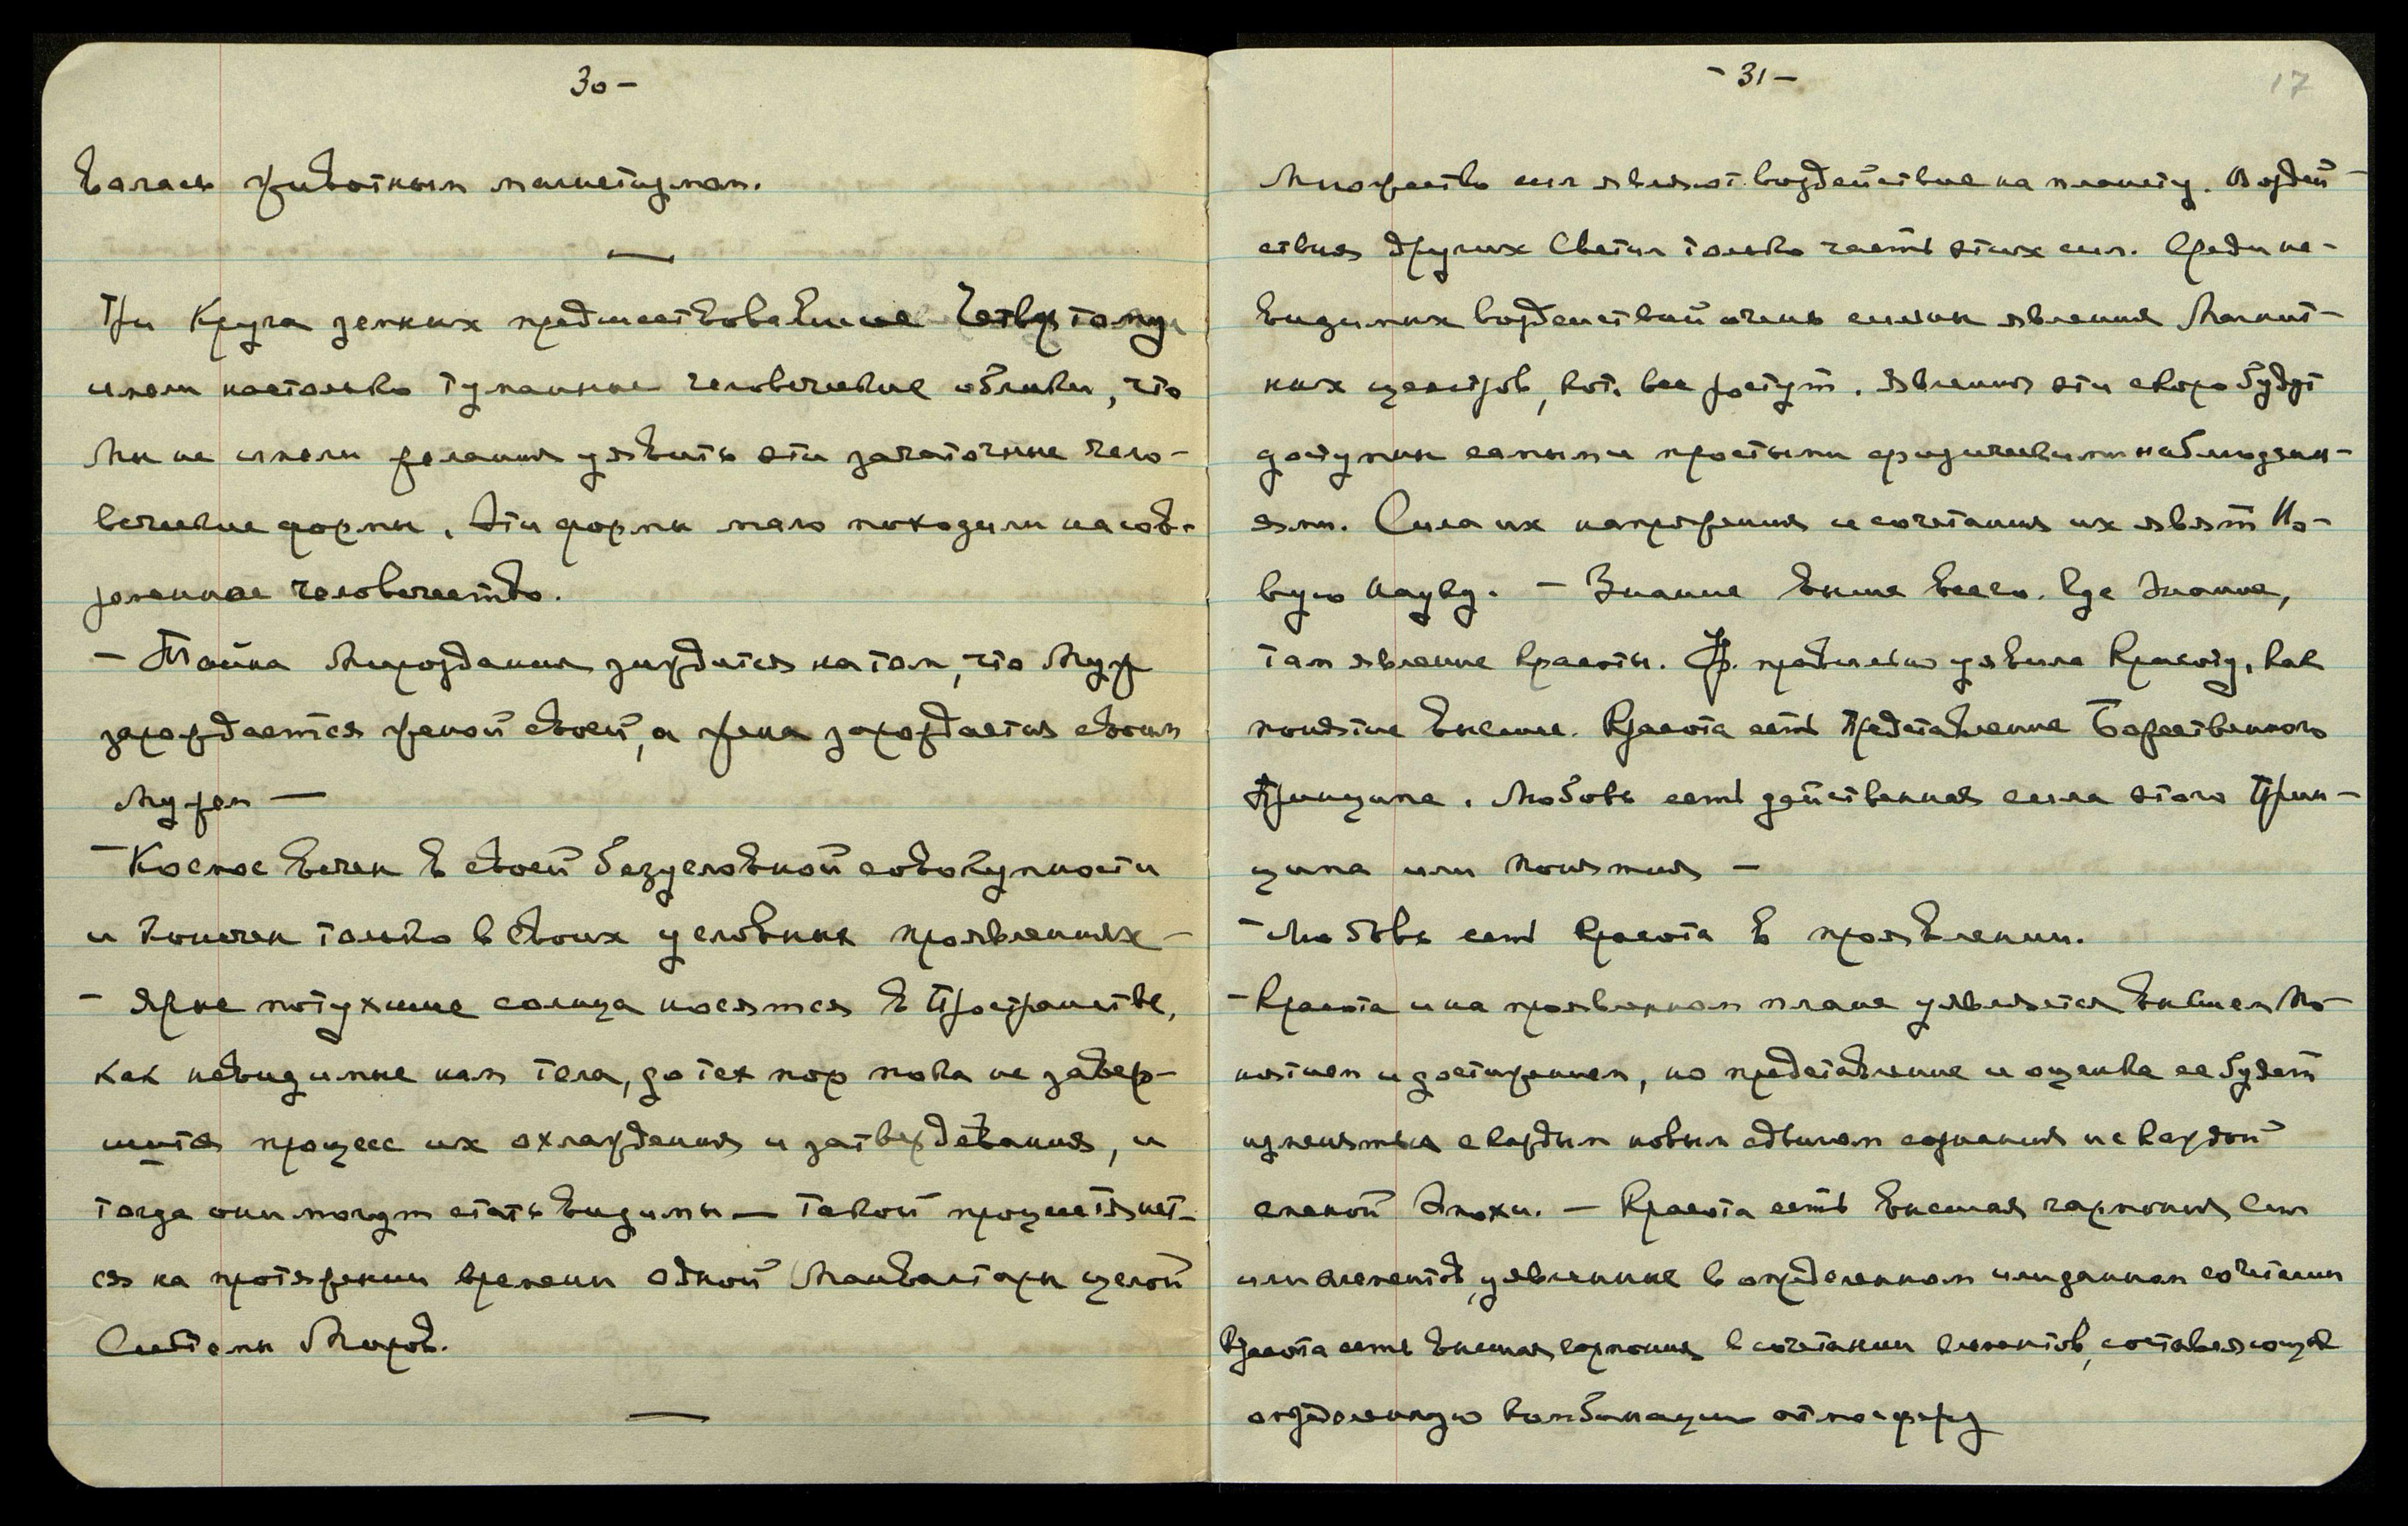 30 –
валась животным магнетизмом.
—
Три Круга земных предшествовавшие Четвертому
имели настолько туманные человеческие облики, что
Мы не имели желания уявить эти зачаточные чело-
веческие формы. Эти формы мало походили на сов-
ременное человечество.
– Тайна Мироздания зиждится на том, что Муж
зарождается женой своей, а жена зарождается своим
Мужем —
– Космос вечен в своей безусловной совокупности
и конечен только в своих условных проявлениях –
– Яркие потухшие солнца носятся в Пространстве,
как невидимые нам тела, до тех пор пока не завер-
шится процесс их охлаждения и затвердевания, и
тогда они могут стать видимы — такой процесс тянет-
ся на протяжении времени одной Манвантары целой
Системы Миров.
—
– 31 –
17
Множество сил являют воздействие на планету. Воздей-
ствия других Светил только часть этих сил. Среди не-
видимых воздействий очень сильны явления Магнит-
ных центров, кот. все растут. Явления эти скоро будут
доступны самыми простыми физическими наблюдени-
ями. Сила их напряжения и сочетания их явят Но-
вую Науку. – Знание выше всего. Где Знание,
там явление Красоты. правильно уявила Красоту, как
понятие высшее. Красота есть Представление Божественного
Принципа. Любовь есть действенная сила этого Прин-
ципа или Понятия –
– Любовь есть Красота в проявлении.
– Красота и на проявленном плане уявляется высшим По-
нятием и достижением, но представление и оценка ее будет
изменяться с каждым новым сдвигом сознания и с каждой
сменой Эпохи. – Красота есть высшая гармония Сил
или элементов, уявленные в определенном или данном сочетании
Красота есть высшая гармония в сочетании элементов, составляющих
определенную комбинацию атмосферу